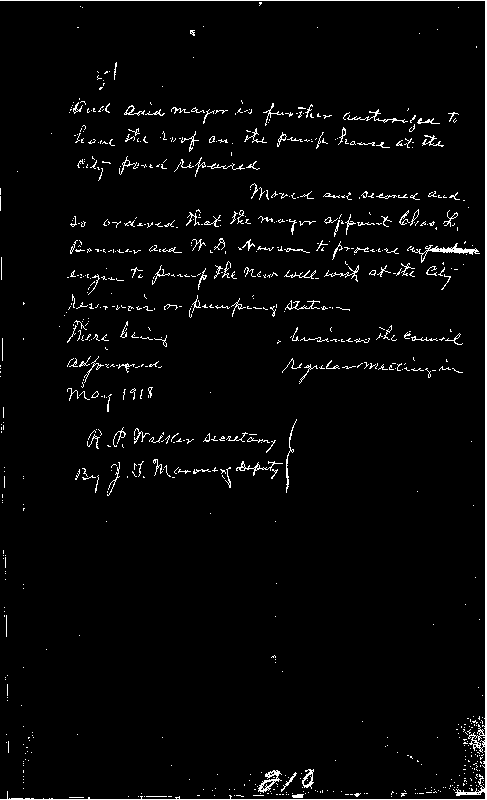 and said mayor is further authorized to
have the roof on the pump house at the
city pond repaired
Moved and seconed and
so ordered that the mayor appoint Chas. L.
Bonner and W. D. Newsom to procure a
engin to pump the new well with at the City
reservoir or pumping station
There being , business the council
adjourned regular meeting in
May 1918
R. P. Walker secretary
By J. T. Maroney Deputy
210